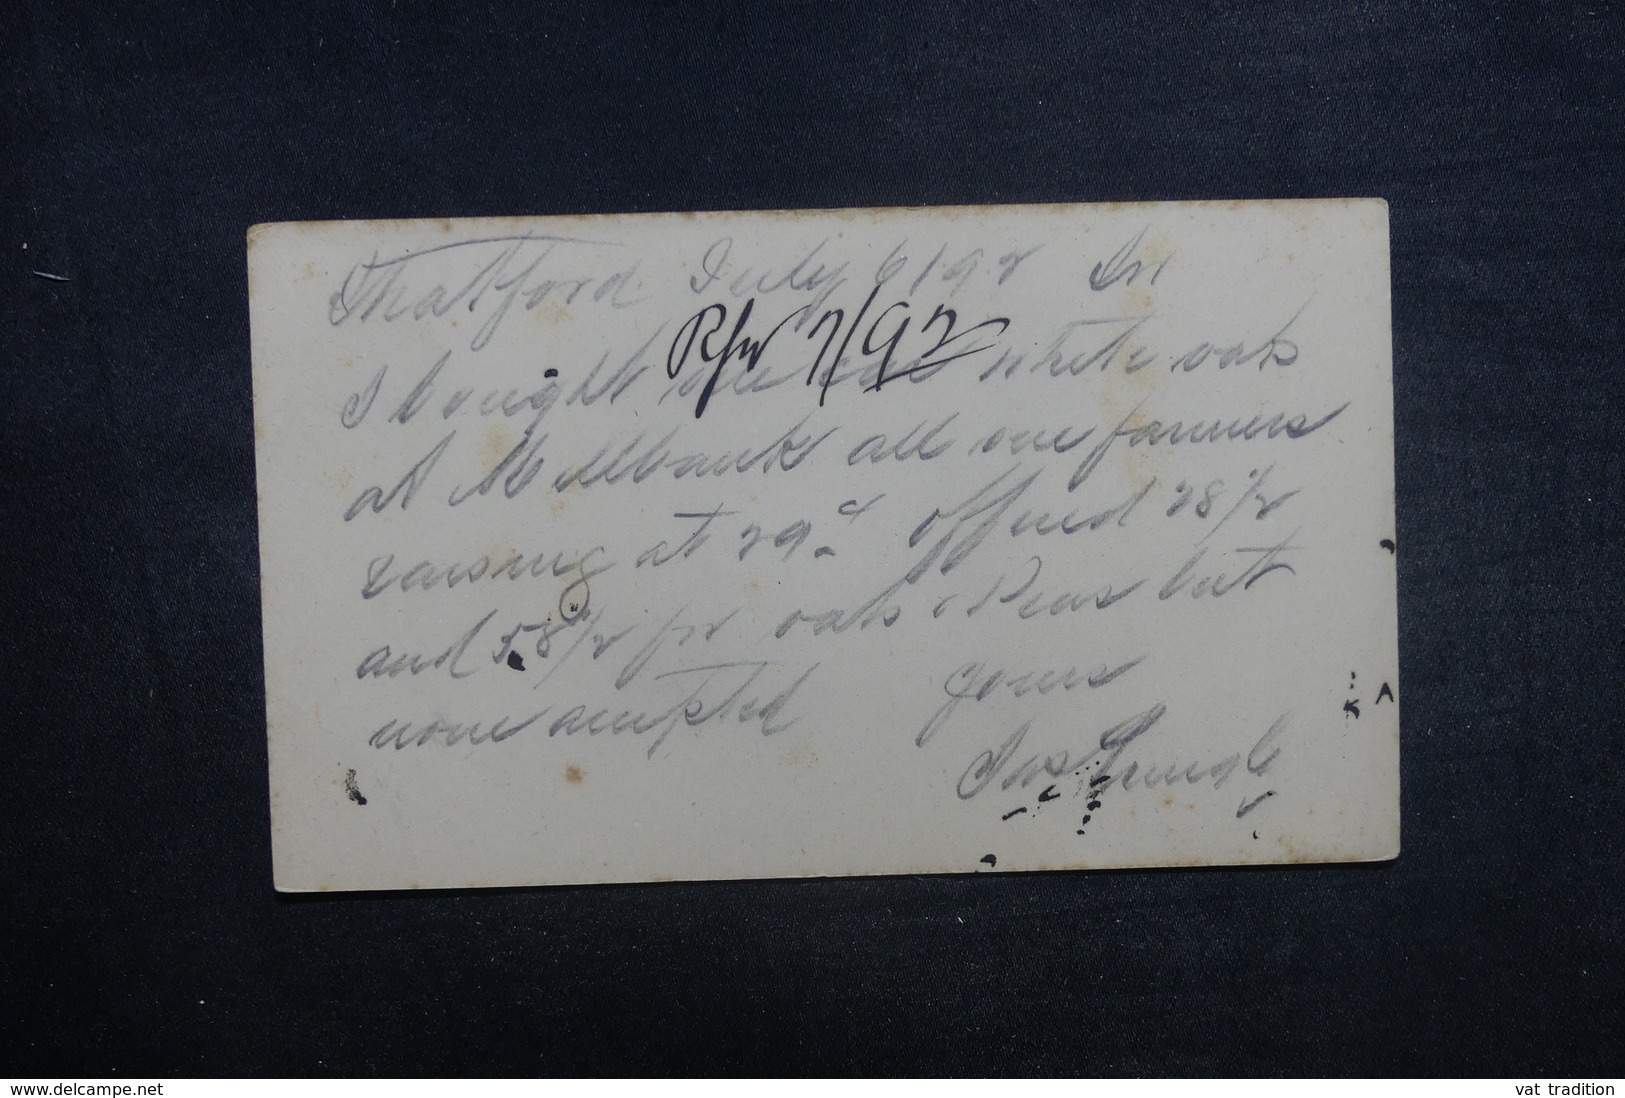 Stratford July 6/92 Sir
I bought one car white oats
at Millbank all one farmers
raising at 29c offered 28 1/2
and 58 1/2 for oats & Peas but
none accepted yours
Jas
7/92
www.delcampe.net
vat tradition